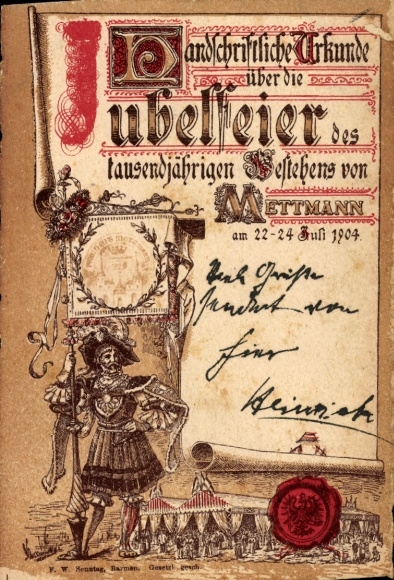 Handschriftliche Urkunde
über die
Jubelfeier des
tausendjährigen Bestehens von
METTMANN
am 22-24 Juli 1904.
Viele Grüße
sendet von
hier
Heinrich
F. W. Sonntag, Barmen. Gesetzl. gesch.